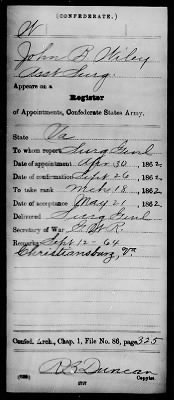 (CONFEDERATE.)
W
John B Wiley
Asst Surg.
Appears on a
Register
of Appointments, Confederate States Army.
State Va
To whom report Surg Genl
Date of appointment Apr. 30, 1862
Date of confirmation Sept 26, 1862
To take rank Mch 18, 1862
Date of acceptance May 21, 1862
Delivered Surg Genl
Secretary of War G. W. R.
Remarks Sept 12-64
Christiansburg, Va.
Confed. Arch., Chap. 1, File No. 86, page 325
R B Duncan
Copyist.